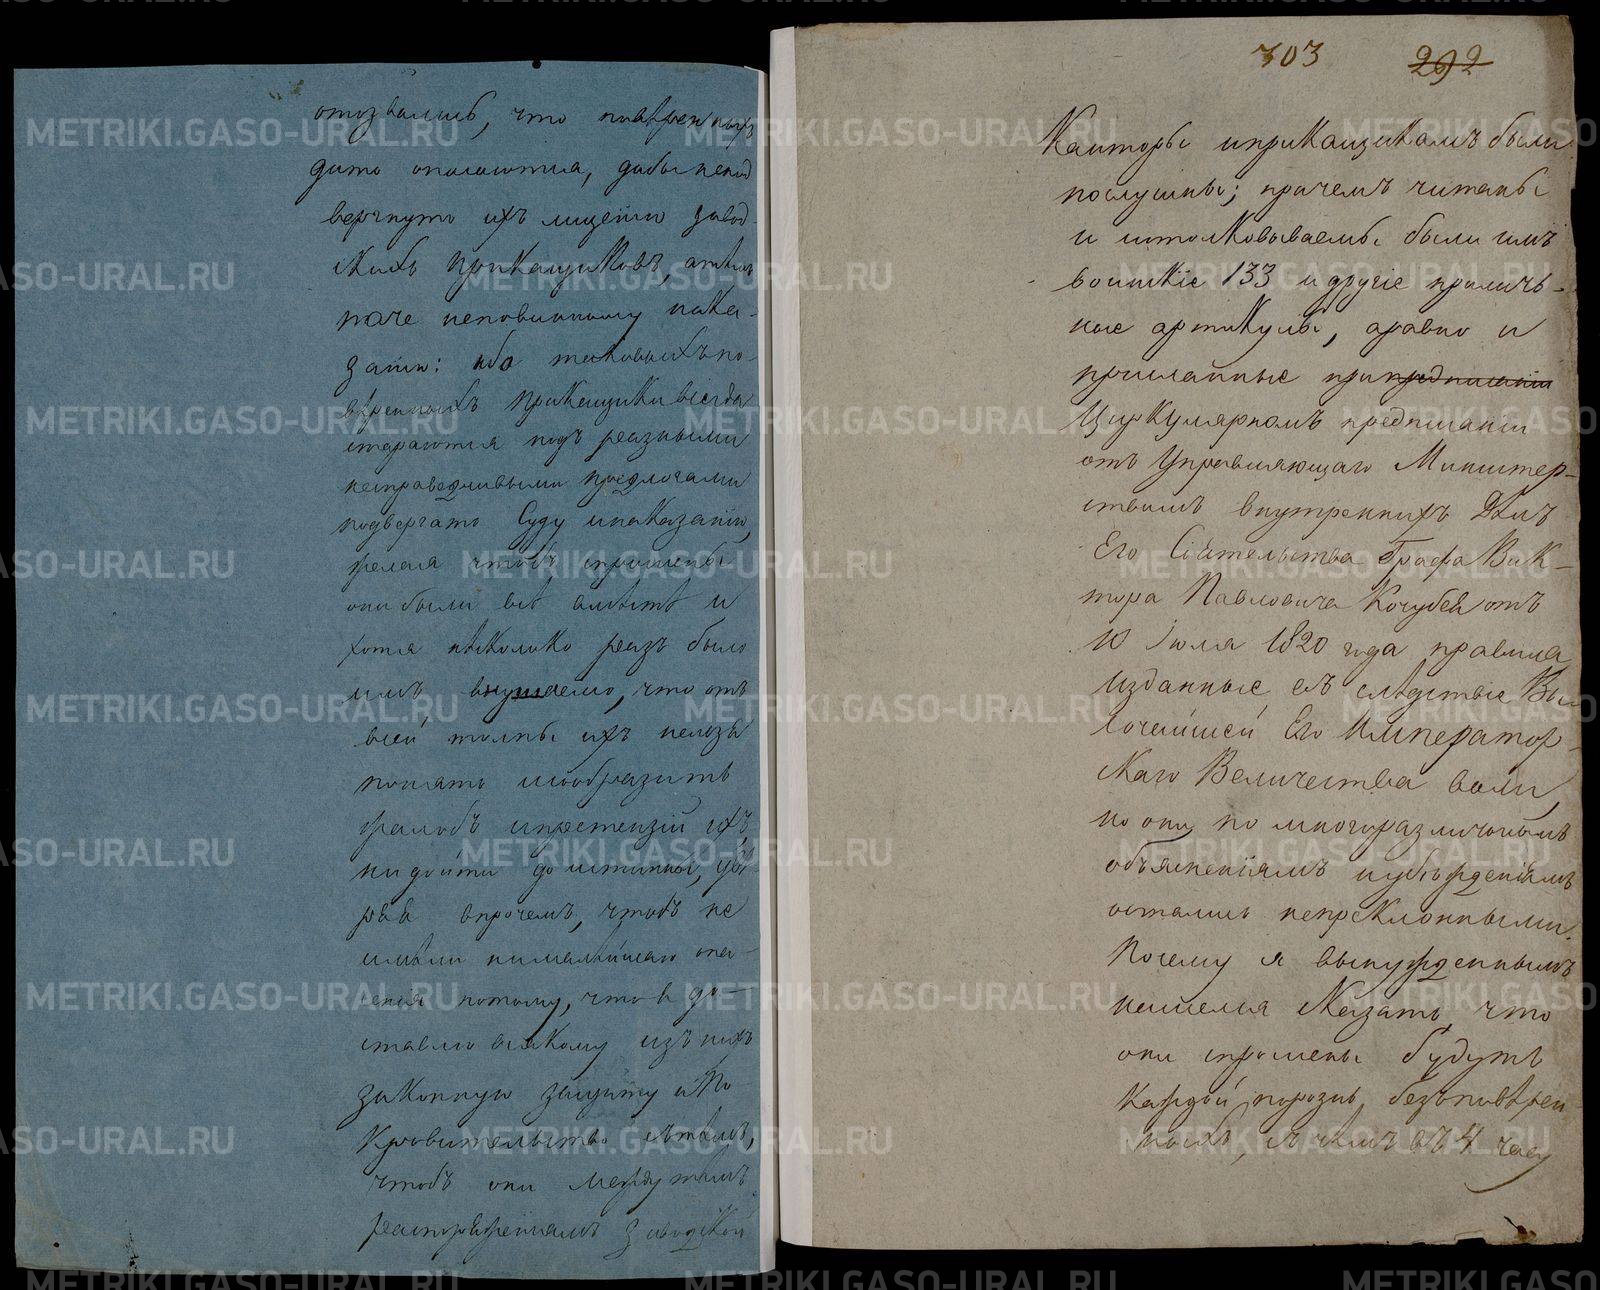 отозвались, что повѣренныхъ
дать опасаются, дабы непод
вергнуть ихъ мщенію завод-
скихъ прикащиковъ, а тѣмъ
паче неповинному нака-
занію: ибо таковыхъ по-
вѣренныхъ прикащики всегда
стараются подъ разными
несправедливыми предлогами
подвергать суду и наказанію,
желая чтобъ спрошены
они были всѣ вмѣстѣ и
хотя нѣсколько разъ было
имъ внушаемо, что отъ
всей толпы ихъ нельзя
понять и сообразить
жалобъ и претензій ихъ
ни дойти до истинны, увѣ-
ряя впрочемъ, чтобъ не
имѣли ни малѣйшаго опа-
сенія потому, что я до-
ставлю всякому изъ нихъ
законную защиту и по-
кровительство съ тѣмъ,
чтобъ они между тѣмъ
распоряженіямъ заводской
303 292
Канторы и прикащикамъ были
послушны; причемъ читаны
и истолковываемы были имъ
воинскіе 133 и другіе приличь-
ные артикулы, а равно и
присланные при предписаніи
Циркулярномъ предписаніи
отъ Управляющаго Министер-
ствомъ внутреннихъ Дѣлъ
Его Сіятельства Графа Вик-
тора Павловича Кочубея отъ
10 Іюля 1820 года правила,
изданные въ слѣдствіе Вы-
сочайшей Его Император-
скаго Величества воли,
но они по многоразличнымъ
объясненіямъ и убѣжденіямъ
остались непреклонными.
Почему я вынужденнымъ
нашелся сказать, что
они спрошены будутъ
каждой порознь безъ повѣрен-
ныхъ, съ чѣмъ въ 4 часу